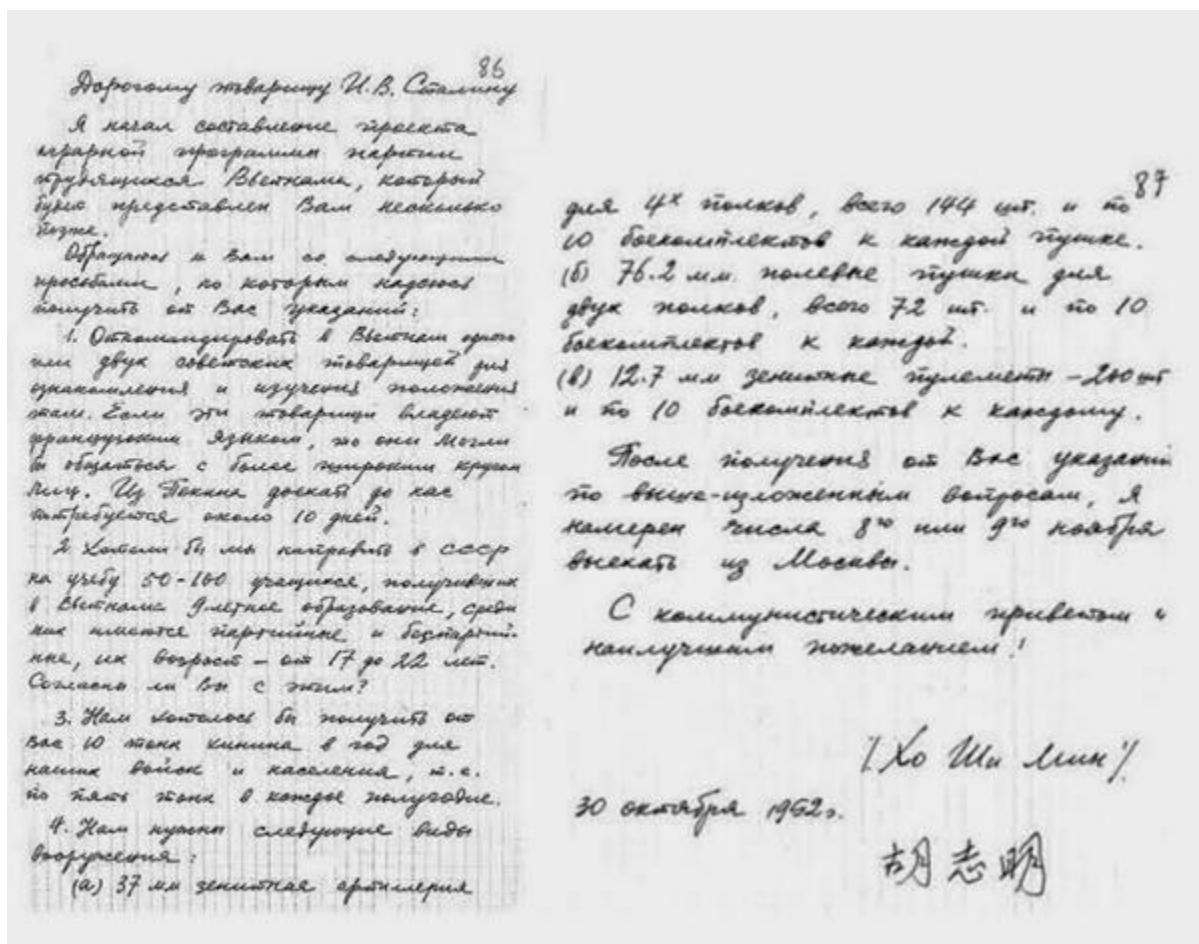 86
Дорогому товарищу И.В. Сталину
Я начал составление проекта
аграрной программы партии
трудящихся Вьетнама, который
будет представлен Вам несколько
позже.
Обращаюсь к Вам со следующими
просьбами, по которым надеюсь
получить от Вас указаний:
1. Откомандировать в Вьетнам одного
или двух советских товарищей для
ознакомления и изучения положения
там. Если эти товарищи владеют
французским языком, то они могли
бы общаться с более широким кругом
лиц. Из Пекина доехать до нас
потребуется около 10 дней.
2. Хотели бы мы направить в СССР
на учебу 50-100 учащихся, получивших
в Вьетнаме 9летное образование, среди
них имеются партийные и беспартий-
ные, их возраст – от 17 до 22 лет.
Согласны ли Вы с этим?
3. Нам хотелось бы получить от
Вас 10 тонн хинина в год для
наших войск и населения, т.е.
по пять тонн в каждое полугодие.
4. Нам нужны следующие виды
вооружения:
(а) 37 мм зенитная артиллерия
87
для 4х полков, всего 144 шт. и по
10 боекомплектов к каждой пушке.
(б) 76.2 мм. полевые пушки для
двух полков, всего 72 шт. и по 10
боекомплектов к каждой.
(в) 12.7 мм зенитные пулеметы – 200 шт
и по 10 боекомплектов к каждому.
После получения от Вас указаний
по выше-изложенным вопросам, я
намерен числа 8го или 9го ноября
выехать из Москвы.
С коммунистическим приветом и
наилучшим пожеланием!
/Хо Ши Мин/
30 октября 1952г.
胡志明